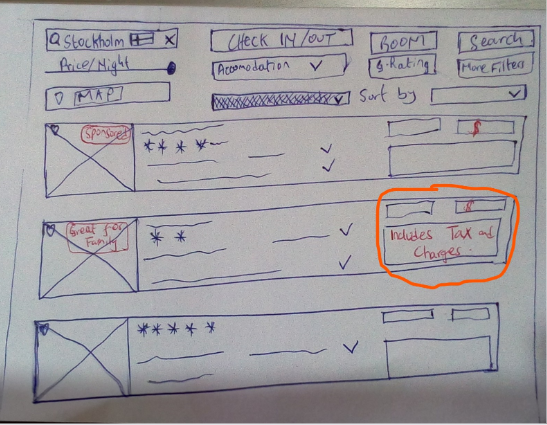 Stockholm X
CHECK IN/OUT
ROOM
Search
Price/Night
Accomodation
G-Rating
More Filters
MAP
Sort by
Sponsored
$
* * * *
Great for
Family
* *
$
Includes Tax and
Charges
* * * * *